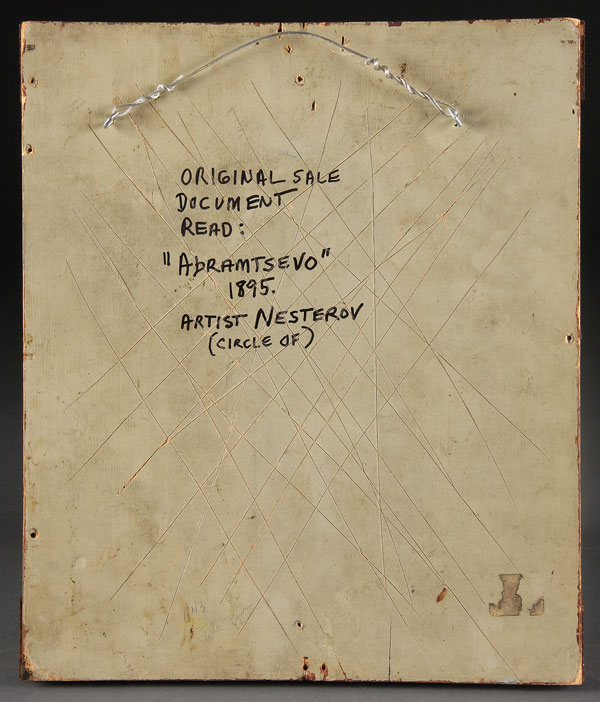 ORIGINAL SALE
DOCUMENT
READ:
"ABRAMTSEVO"
1895.
ARTIST NESTEROV
(CIRCLE OF)